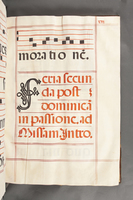 moratio nē.
Feria secun
da post
dominicā
in passione, ad
Missam Intro.